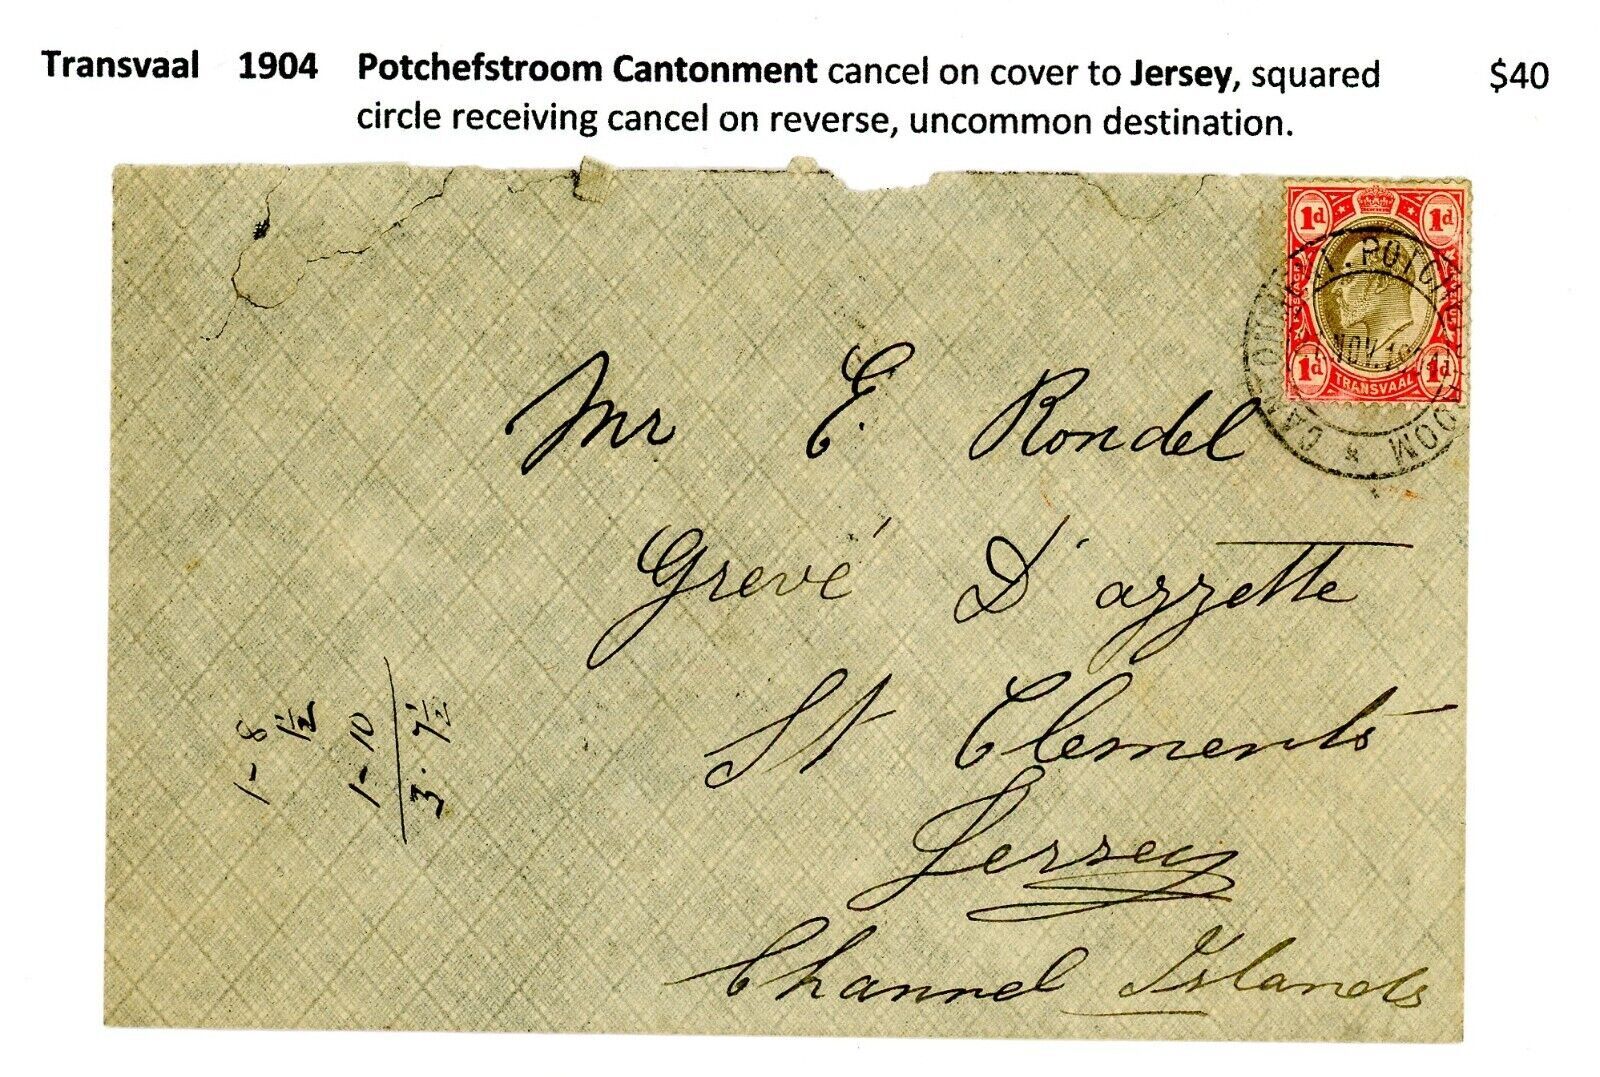 Transvaal 1904 Potchefstroom Cantonment cancel on cover to Jersey, squared $40
circle receiving cancel on reverse, uncommon destination.
1d 1d
POSTAGE REVENUE
1d 1d
TRANSVAAL
NOV. 10
Mr E. Rondel
Grevé D'azzette
St Clements
Jersey
Channel Islands
1-8
1½
1-10
3.7½